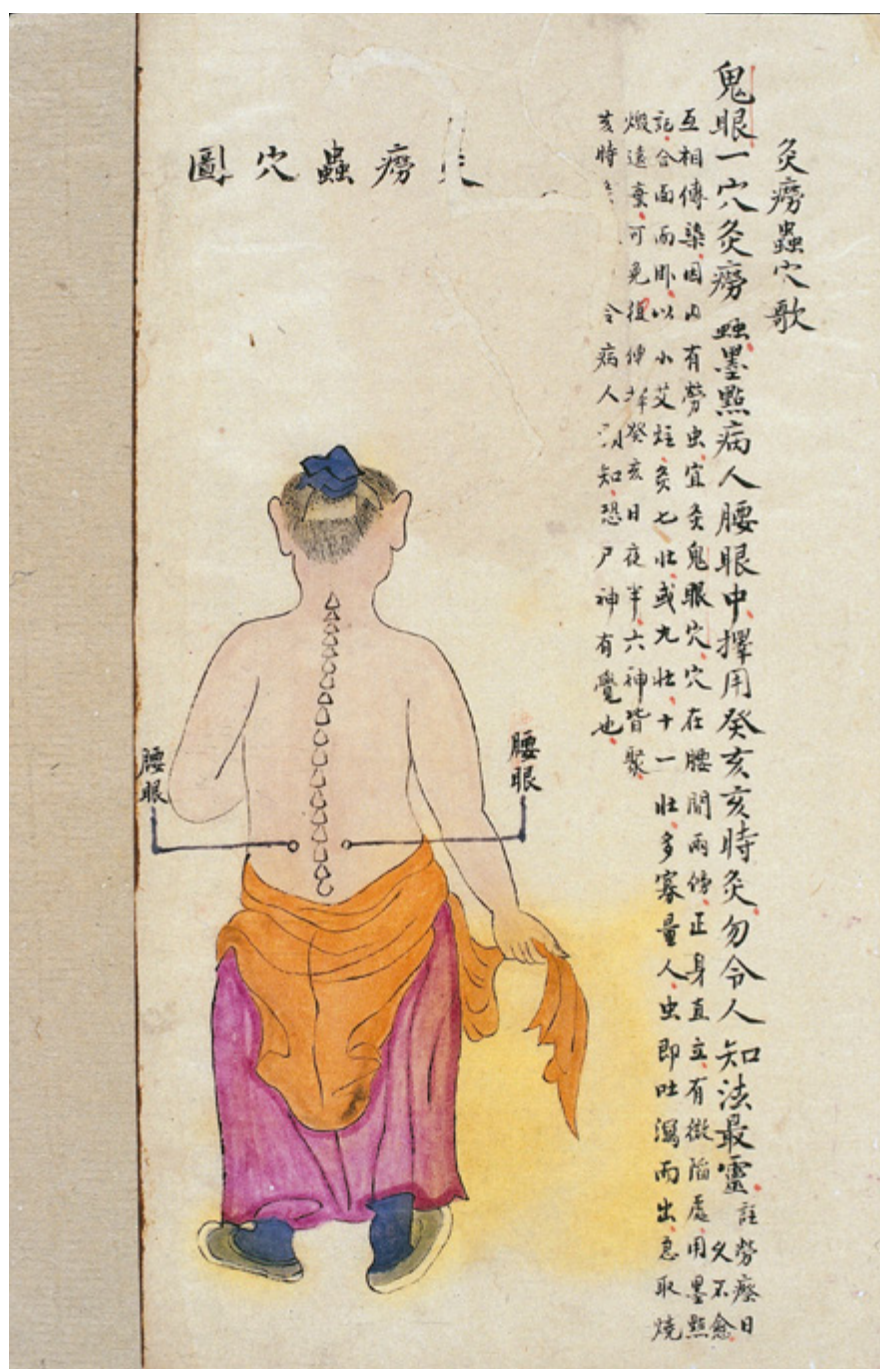 灸癆蟲穴歌
鬼眼一穴灸癆蟲墨點病人腰眼中擇用癸亥亥時灸勿令人知法最靈
註勞瘵日
久不愈
互相傳染因內有勞虫宜灸鬼眼穴穴在腰間兩傍正身直立有微陷處用墨點
記合面而卧以小艾炷灸七壯或九壯十一壯多寡量人虫即吐瀉而出急取燒
燬遠棄可免復癸亥日夜半六神皆聚
亥時令病人知恐尸神有覺也
癆蟲穴圖
腰眼
腰眼